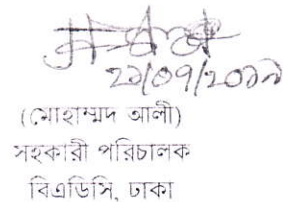 ২১/০৭/২০১৯
(মোহাম্মদ আলী)
সহকারী পরিচালক
বিএডিসি, ঢাকা